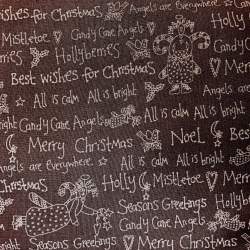 wishes for Christmas Angels are Everywhere.
Mistletoe Candy Cane Angels Holly
Hollyberries Merry
Best wishes for Christmas
All is calm All is
bright Candy Cane Angels
Merry Christmas Noel
Angels are everywhere. All is calm All is bright
Christmas Holly Mistletoe Merry
Seasons Greetings
All is calm Candy Cane Angels
bright Merry Christmas
Seasons Greetings Holly